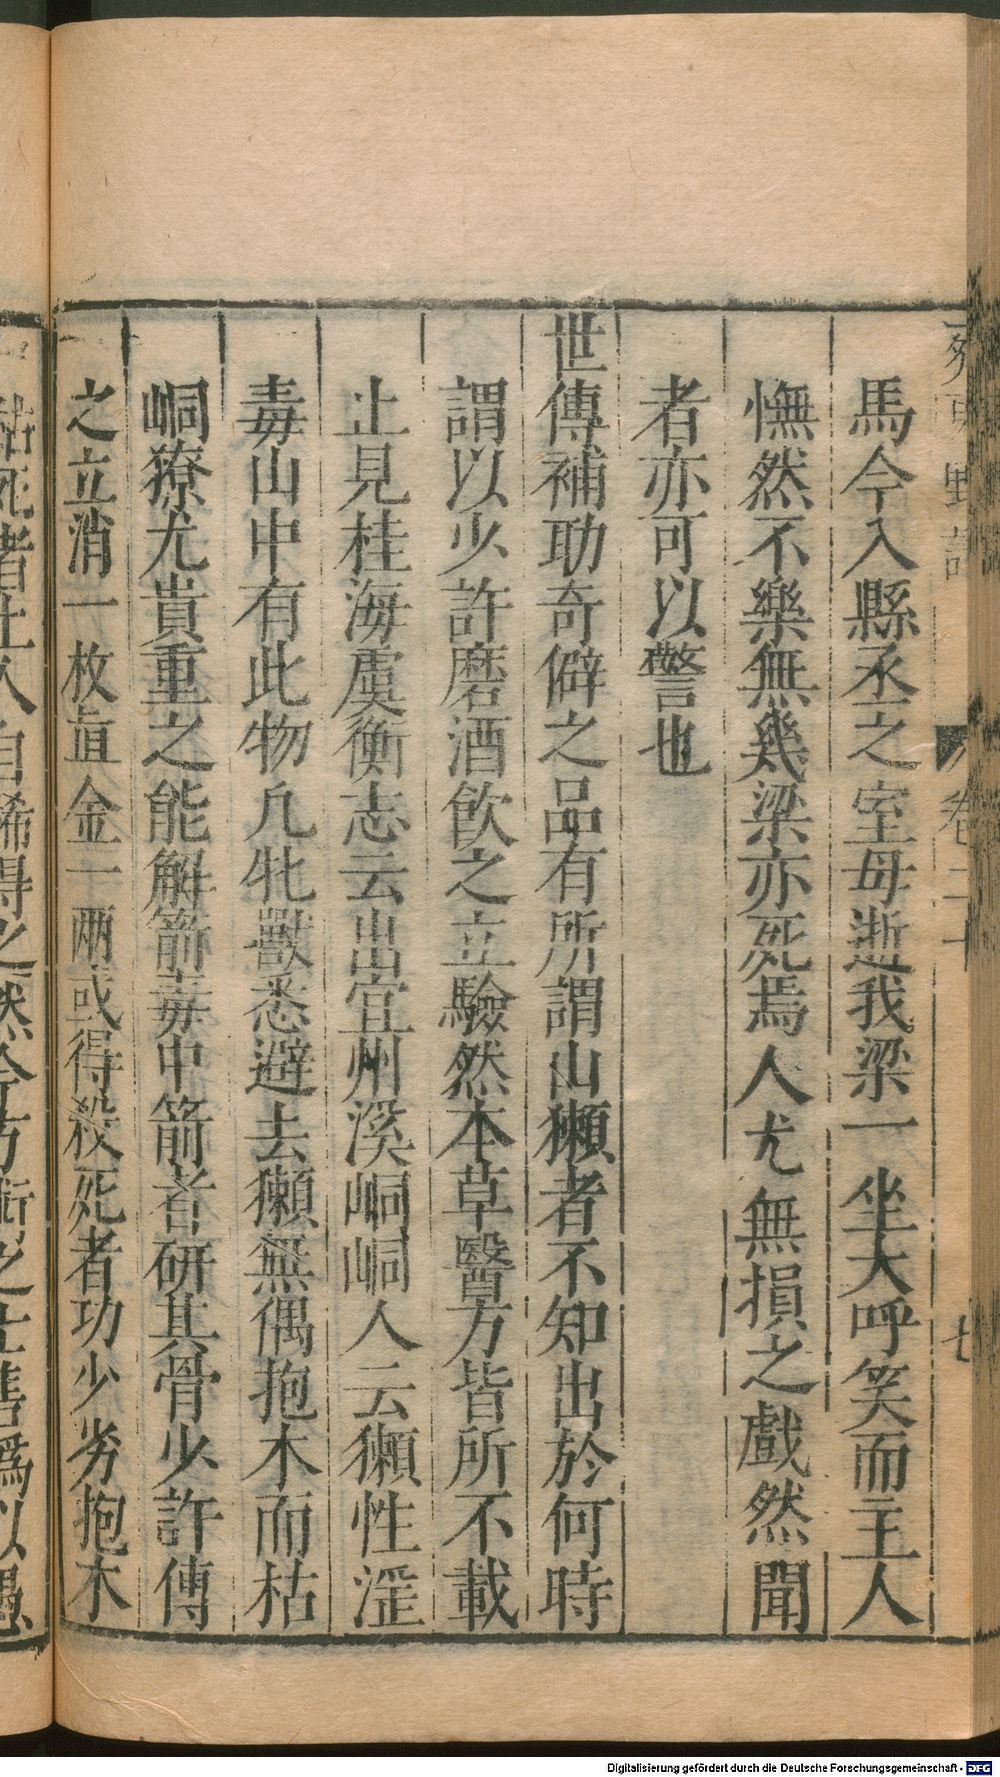 馬今入縣丞之室毋逝我梁一坐大呼笑而主人
憮然不樂無幾梁亦死焉人尤無損之戲然聞
者亦可以警也
世傳補助奇僻之品有所謂山獺者不知出於何時
謂以少許磨酒飲之立驗然本草醫方皆所不載
止見桂海虞衡志云出宜州溪峒峒人云獺性淫
毒山中有此物凡牝獸悉避去獺無偶抱木而枯
峒獠尤貴重之能解箭毒中箭者研其骨少許傳
之立消一枚直金一兩或得殺死者功少劣抱木
枯死者土人自稀得之然今方術之士售爲以愚
卷二十
七
Digitalisierung gefördert durch die Deutsche Forschungsgemeinschaft - DFG